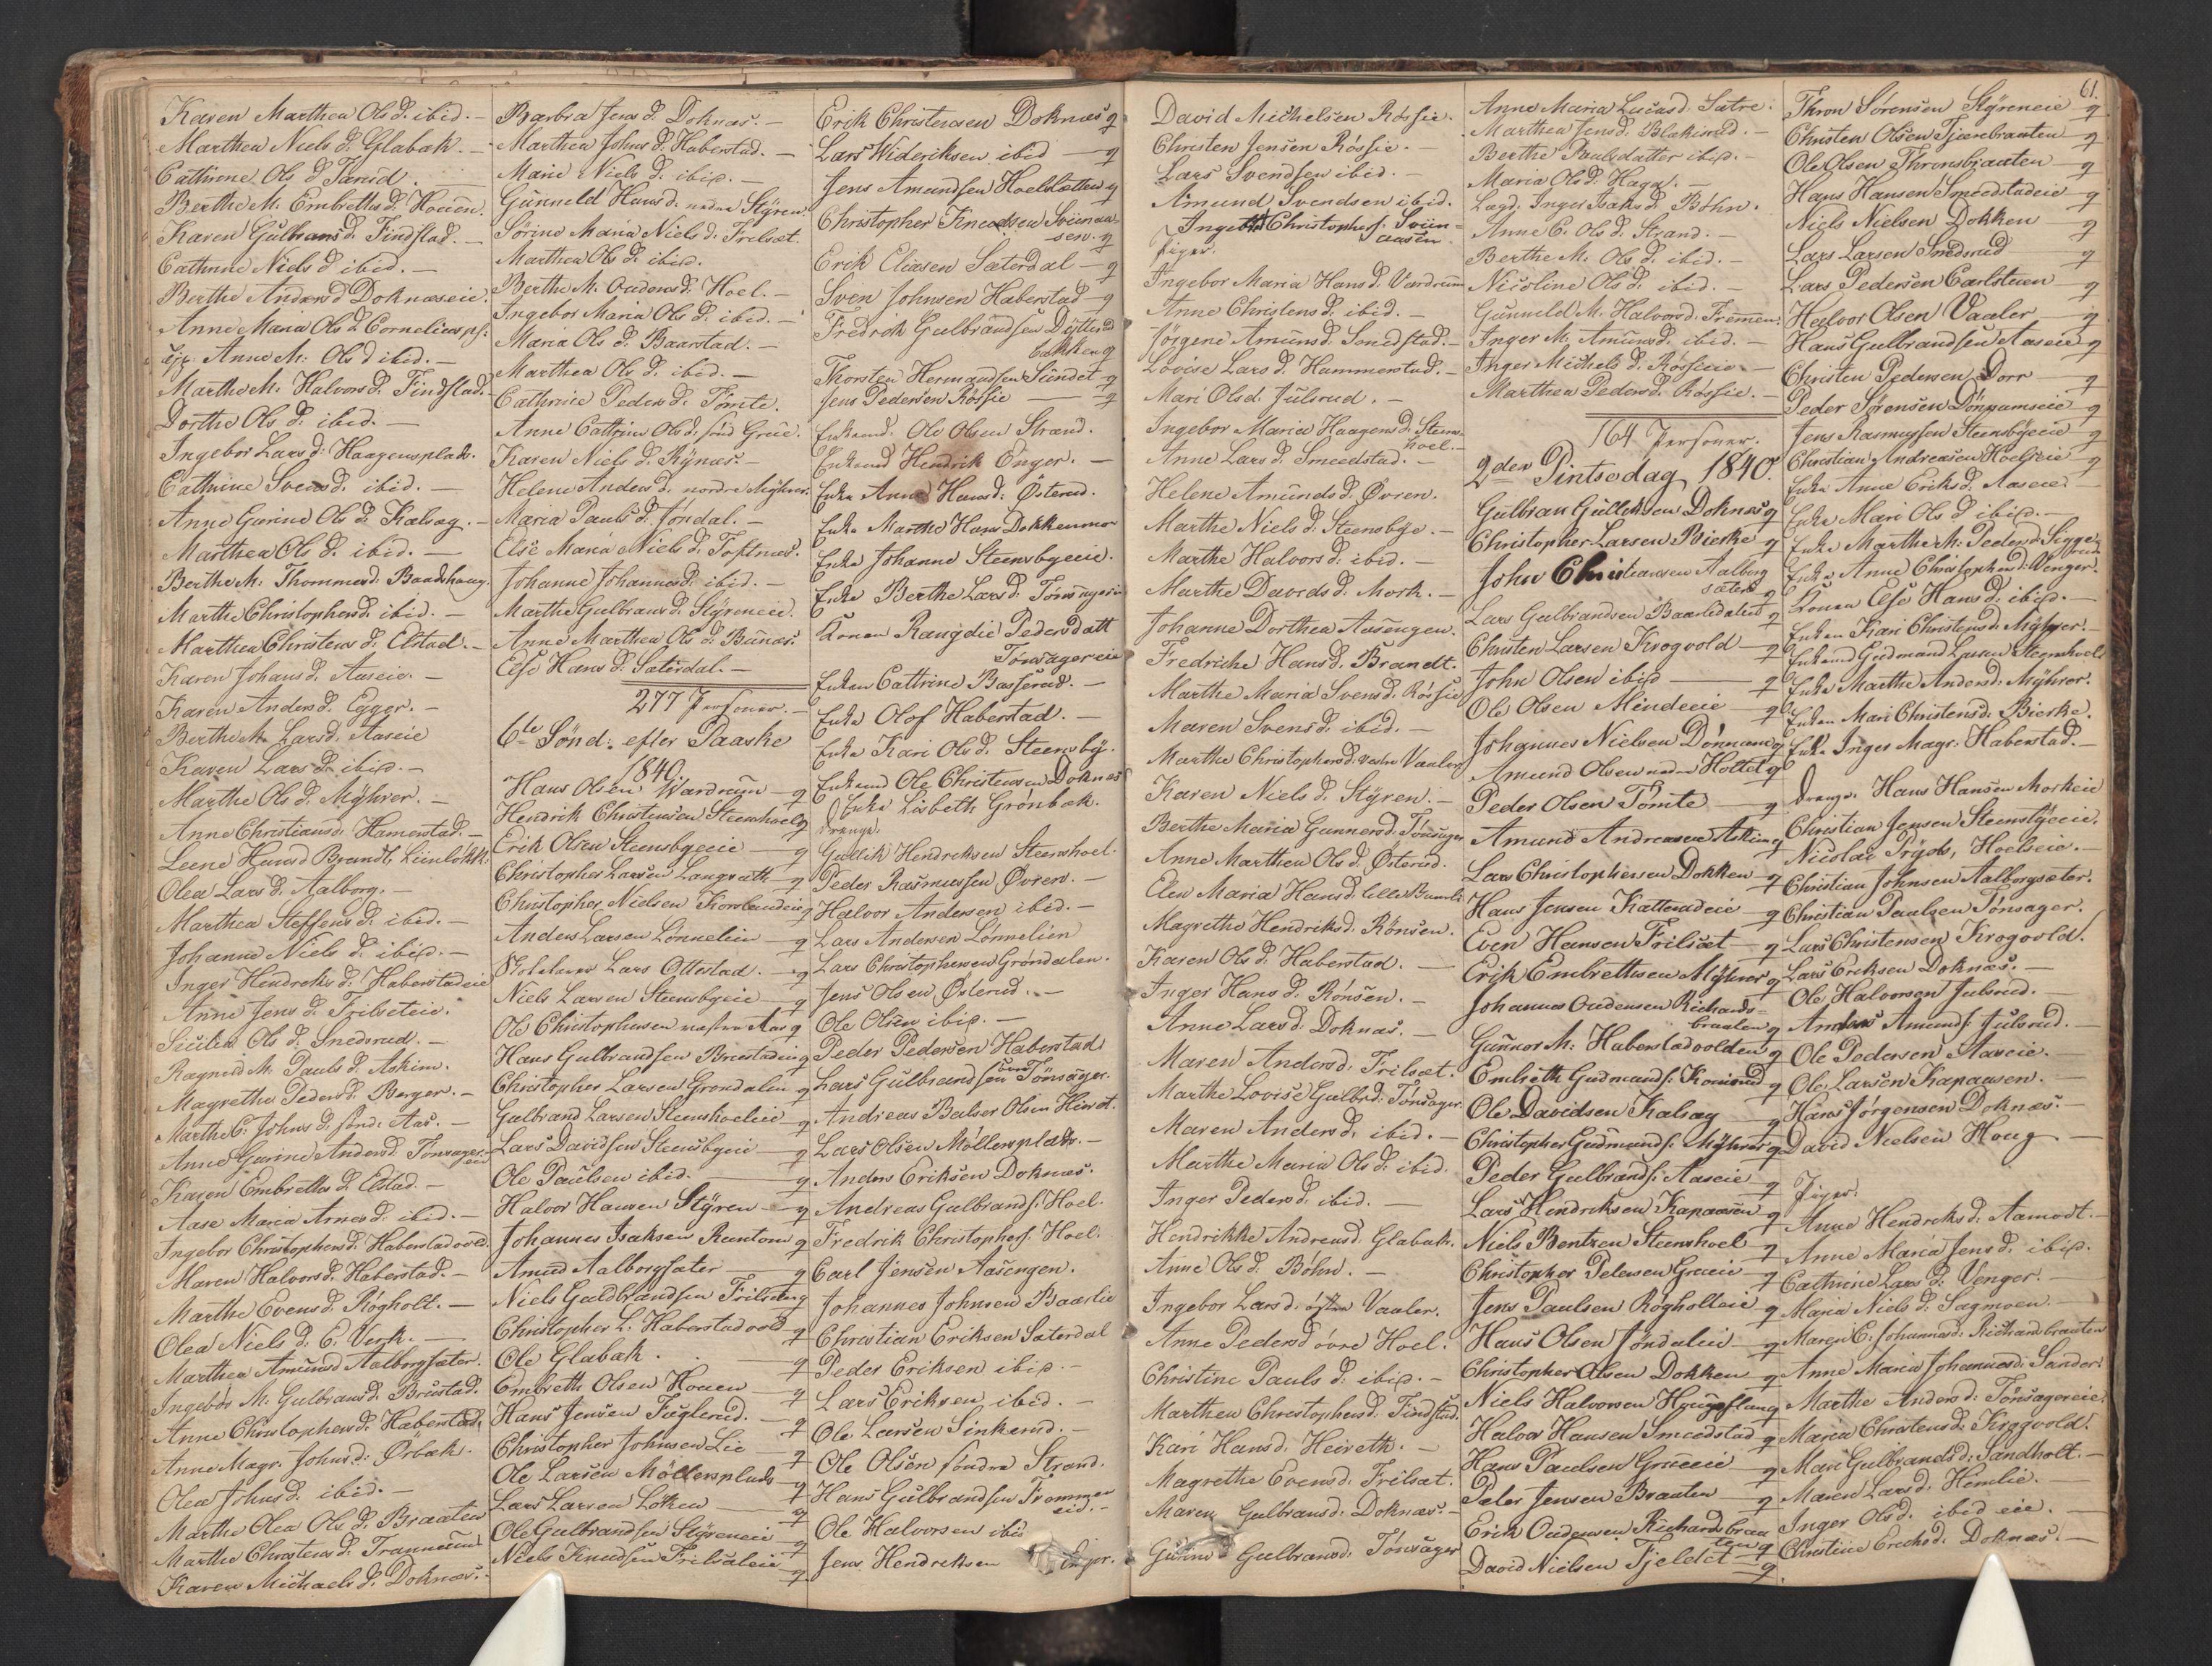 Karen Marthea Ols d. ibid. —
Marthea Niels d. Glabak. —
Cathrine Ols d.
Berthe M. Embrethsd. Houen.
Karen Gulbransd. Findstad. —
Cathrine Niels d. ibid. —
Berthe Andersd. Doknæseie.
Anne Maria Ols d. Corneliuspl:
Anne M: Ols d ibid. —
Marthe M. Halvorsd. Findstad. —
Dorthe Ols d. ibid. —
Ingebor Lars d: Haagensplads.
Cathrine Svensd. ibid. —
Anne Gurine Ols d: Kalsag. —
Marthea Ols d. ibid. —
Berthe M: Thommesd. Baadshaug.
Marthe Christophersd. ibid. —
Marthea Christens d. Elstad. —
Karen Johans d. Aaseie. —
Karen Anders d. Egger. —
Berthe M. Larsd. Aaseie
Karen Lars d. ibid. —
Marthe Ols d. Myhrer. —
Anne Christiansd. Hamerstad. —
Leene Hansd Brandt,
Olea Lars d. Aalborg. —
Marthea Steffens d. ibid. —
Johanne Niels d. ibid. —
Inger Hendriks d. Haberstadeie
Anne Jens d. Frilseteie.
Ols d. Snedsrud. —
M. Pauls d. Askim.
Magrethe Peders d. Berger. —
Marthe C. Johns d. sønd. Aas. —
Anne Gurine Andersd. Tønsagereie
Karen Embreths d. Elstad. —
Aase Maria Arnes d. ibid. —
Ingebor Christophersd. Haberstadvold.
Maren Halvors d. Haberstad. —
Marthe Evens d. Rögholt. —
Olea Niels d. E. Verk. —
Marthea Amunsd Aalborgsæter.
Ingebor M. Gulbrans d. Brustad.
Anne Christophersd. Haberstad.
Anne Magr. Johnsd. Örbæk.
Olea Johns d. ibid. —
Marthe Olea Ols d. Braaten
Marthe Christens d.
Karen Michaels d. Doknæs. —
Barbra Jens d. Doknæs. —
Marthea Johns d. Haberstad. —
Marie Niels d. ibid. —
Gunneld Hans d. nedre Styren.
Sørine Maria Niels d. Frilset.
Marthea Ols d. ibid.
Berthe M. Oudens d. Hoel. —
Ingebor Maria Ols d. ibid. —
Maria Ols d. Baarstad. —
Marthea Ols d. ibid. —
Cathrine Peders d. Tömte.
Anne Cathrine Ols d. sönd Grue.
Karen Niels d. Rynæs. —
Helene Anders d. nordre Myhrer.
Maria Pauls d. Jöndal. —
Else Maria Niels d. Toftnæs.
Johanne Johannesd. ibid. —
Marthe Gulbrans d. Styreneie.
Anne Marthea Ols d. Bunæs.
Else Hans d. Sæterdal. —
277 Personer. —
6te Sönd: efter Paaske
1840.
Hans Olsen Wardrum — g
Hendrik Christensen Steenshoel g
Erik Olsen Steensbyeie — g
Christopher Larsen Langsæth — g
Christopher Nielsen g
Anders Larsen Lönnelien — g
Skolelærer Lars Ottestad. — g
Niels Larsen Steensbyeie — g
Ole Christophersen Aas g
Hans Gulbrandsen Brustadeie g
Christopher Larsen Grøndalen g
Gulbrand Larsen Steenshoeleie g
Lars Davidsen Steensbyeie — g
Ole Paulsen ibid. — g
Halvor Hansen Styren — g
Johannes Isaksen g
Amund Aalborgsæter — g
Niels Guldbrandsen g
Christopher L: Haberstadvold g
Ole Glabak. g
Embreth Olsen Houen — g
Hans Jensen Fuglerud. — g
Christopher Johnsen Lie — g
Ole Larsen Möllersplads g
Lars Larsen Loken — g
Ole Gulbrandsen Styreneie — g
Niels Knudsen g
Erik Christensen Doknæs g
Lars Wideriksen ibid — g
Jens Amundsen g
Christopher Knudsen Sviinaa-
sen. g
Erik Eliasen Sæterdal — g
Sven Johnsen Haberstad — g
Fredrik Gulbrandsen
bakken g
Thorsten Hermandsen Sundet g
Jens Pedersen Røssie — g
Enkemd. Ole Olsen Strand.
Enkemd Hendrik Onger. —
Enke Anne Hansd. Österud.
Enke Marthe Hans Dokkenmoe
Enke Johanne Steensbyeeie.
Enke Berthe Lars d. Tønsagereie
Konen Rangdie Pedersdatt
Tønsagereie
Enken Cathrine Basserud. —
Enke Olof Haberstad. —
Enke Kari Ols d. Steensby. —
Enkemd Ole Christensen Doknæs
Enke Lisbeth Grönbæk.
Drenge.
Gudik Hendriksen Steenshoel.
Peder Rasmussen Øvren. —
Halvor Andersen ibid. —
Lars Andersen Lönnelien
Lars Christophersen Gröndalen.
Jens Olsen Østerud. —
Ole Olsen ibid. —
Peder Pedersen Haberstad.
Lars Gulbrandsen Tønsager.
Andreas Balser Olsen
Lars Olsen Møllersplads. —
Anders Eriksen Doknæs.
Andreas Gulbrands: Hoel.
Fredrik Christophers: Hoel.
Carl Jensen Aasengen.
Johannes Johnsen Baarlie
Christian Eriksen Sæterdal
Peder Eriksen ibid. —
Lars Eriksen ibid. —
Ole Larsen Sinkerud. —
Ole Olsen søndre Strand.
Hans Gulbrandsen Frommen
eie. —
Ole Halvorsen ibid
Jens Hendriksen
David Michelsen Røssie.
Christen Jensen Røssie. —
Lars Svendsen ibid. —
Amund Svendsen ibid. —
Christophers: Sviin-
aasen.
Piger.
Ingebor Maria Hans d. Vardrum
Anne Christens d. ibid. —
Jörgene Amuns d. Smedstad. —
Lovise Lars d. Hammerstad. —
Mari Ols d. Julsrud. —
Ingebor Maria Haagens d. Steens-
hoel. —
Anne Lars d. Smeedstad. —
Helene Amunds d. Øvren.
Marthe Niels d. Steensbye. —
Marthe Halvors d. ibid. —
Marthe Davids d. Mork. —
Johanne Dorthea Aasengen.
Fredrikke Hans d. Brandt.
Marthe Maria Svens d. Røssie
Maren Svens d. ibid. —
Marthe Christophersd. vestre Vaaler
Karen Niels d. Styren. —
Berthe Maria Gunnersd. Tönsager
Anne Marthea Ols d. Østerud.
Elen Maria Hans d. lille
Magrethe Hendriks d. Rønsen.
Karen Ols d. Haberstad. —
Inger Hans d. Rønsen. —
Anne Lars d. Doknæs. —
Maren Anders d. Frilset. —
Marthe Lovise Gulbr d. Tönsager
Maren Anders d. ibid. —
Marthe Maria Ols d. ibid.
Inger Peders d. ibid. —
Hendrikke Andreas d. Glabak.
Anne Ols d. Böhn. —
Ingebor Lars d. östre Vaaler.
Anne Peders d øvre Hoel.
Christine Pauls d. ibid. —
Marthea Christophers d. Findstad.
Kari Hans d. Heireth. —
Magrethe Evens d. Frilset.
Maren Gulbrans d. Doknæs. —
Gulbrans d. Tönsager
Anne Maria Lucas d. Sætre.
Marthea Jens d. Blekisrud. —
Berthe Paulsdatter ibid. —
Maria Ols d. Hagen. —
Lagd. Inger Isaks d. Böhn.
Anne C. Ols d. Strand. —
Berthe M. Ols d. ibid. —
Nicoline Ols d. ibid. —
Gunneld M. Halvors d. Frommen.
Inger M. Amuns d. ibid. —
Inger Michels d. Røssieeie —
Marthea Peders d. Røssie. —
164 Personer.
2den Pintsedag 1840.
Gulbran Gulliksen Doknæs g
Christopher Larsen Bierke g
John Christiansen Aalborg
sæter g
Lars Gulbrandsen Baarlidalen g
Christen Larsen Krogvold — g
John Olsen ibid — g
Ole Olsen Mindeeie — g
Johannes Nielsen Dönnum g
Amund Olsen nedre Holtet g
Peder Olsen Tömte — g
Amund Andreasen Askim g
Lars Christophersen Dokken — g
Hans Jensen Katterudeie — g
Even Hansen Frilset — g
Erik Embrethsen Myhrer g
Johannes Oudensen Richards-
braaten g
Gunnar M: Haberstadvolden g
Embreth Gudmands: g
Ole Davidsen Kalsag — g
Christopher Gudmunds: Myhrer g
Peder Gulbrands: Aaseie — g
Lars Hendriksen Kapaasen g
Niels Bentzen Steenshoel — g
Christopher Pedersen Grueeie — g
Jens Paulsen Rögholteie — g
Hans Olsen Jöndalen — g
Christopher Olsen Dokken — g
Niels Halvorsen g
Halvor Hansen Smeedstad g
Hans Paulsen Grueeie — g
Peter Jensen Braaten — g
Erick Oudensen Richardsbraa
ten g
David Nielsen Tjeldet — g
61.
Thron Sørensen Styreneie g
Christen Olsen Tjærebraaten g
Ole Olsen Thronsbraaten g
Hans Hansen Smeedstadeie g
Niels Nielsen Dokken g
Lars Larsen Snedsrud g
Lars Pedersen Carlstuen g
Halvor Olsen Vaaler — g
Hans Gulbrandsen Aaseie g
Christen Pedersen Dorr — g
Peder Sørensen Dönnumseie g
Jens Rasmussen Steensbyeeie g
Christian Andreasen Hoelseie g
Enke Anne Eriks d. Aaseie
Enke Mari Ols d ibid. —
Enke Marthe M. Peders d Sigge
rud
Enke Anne Christophers d. Venger.
Konen Else Hans d. ibid. —
Enken Kari Christens d. Myhrer. —
Enkemd Gudmand Larsen Steenshoel
Enke Marthe Anders d. Myhrer.
Enken Mari Christens d. Bierke.
Enk. Inger Magr. Haberstad. —
Drenge. Hans Hansen Morkeie
Christian Jensen Steensbyeeie.
Nicolai Prydz, Hoelseie. —
Christian Johnsen Aalborgsæter.
Christian Paulsen Tønsager.
Lars Christensen Krogvold.
Lars Ericksen Doknæs. —
Ole Halvorsen Julsrud. —
Anders Amunds: Julsrud. —
Ole Pedersen Aaseie. —
Ole Larsen Kapaasen. —
Hans Jørgensen Doknæs. —
David Nielsen Houg —
Piger.
Anne Hendriks d. Aamodt. —
Anne Maria Jens d. ibid. —
Cathrine Lars d. Venger. —
Maria Niels d. Sagmoen. —
Maren C. Johannesd. Richardsbraaten
Anne Maria Johannesd. Sander.
Marthe Anders d. Tönsagereie.
Maria Christens d. Krogvold.
Mari Gulbrands d. Sandholt. —
Maren Lars d. Himlie. —
Inger Ols d. ibid eie. —
Christine Erichs d. Doknæs. —